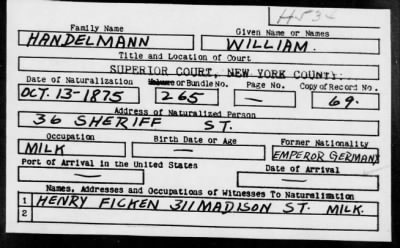 H534
Family Name
Given Name or Names
HANDELMANN
WILLIAM.
Title and Location of Court
SUPERIOR COURT, NEW YORK COUNTY.
Date of Naturalization
Volume or Bundle No.
Page No.
Copy of Record No.
OCT. 13-1875
265
—
69.
Address of Naturalized Person
36 SHERIFF ST.
Occupation
Birth Date or Age
Former Nationality
MILK
—
EMPEROR GERMANY
Port of Arrival in the United States
Date of Arrival
—
—
Names, Addresses and Occupations of Witnesses To Naturalization
1 HENRY FICKEN 311 MADISON ST. MILK.
2